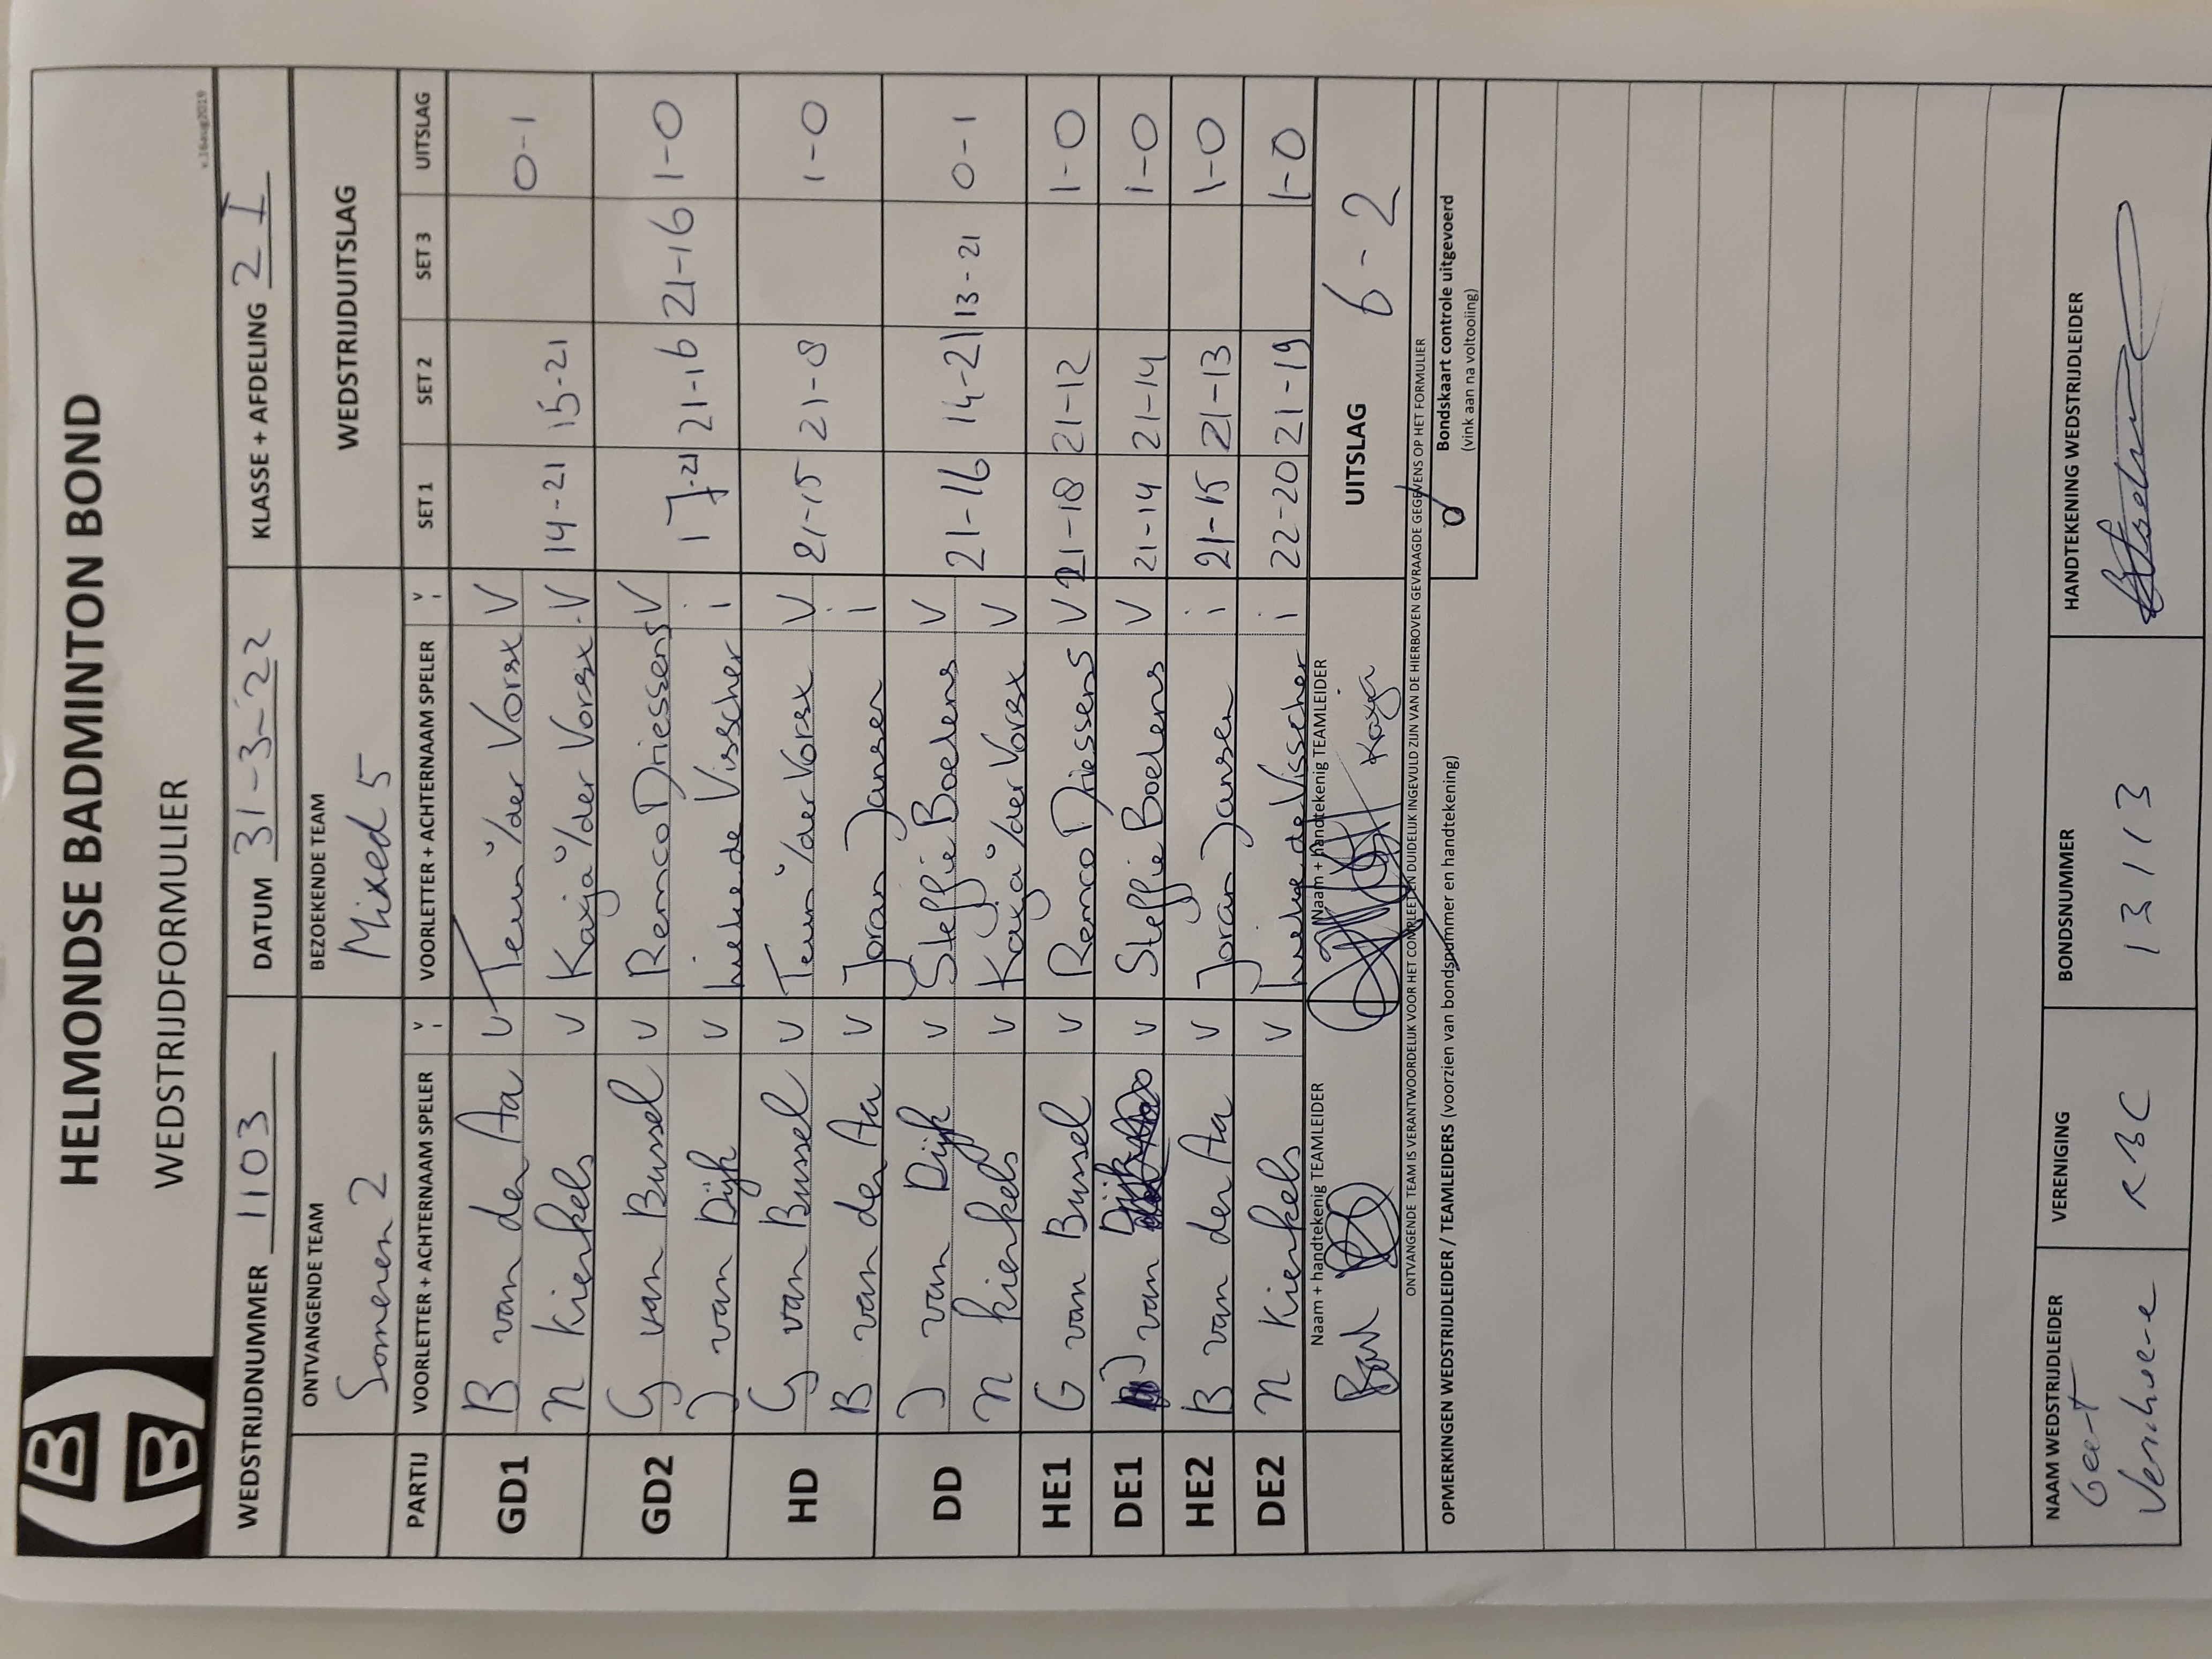 HELMONDSE BADMINTON BOND
WEDSTRIJDFORMULIER
v.16aug2019
WEDSTRIJDNUMMER 1103 DATUM 31-3-22 KLASSE + AFDELING 2 I
ONTVANGENDE TEAM BEZOEKENDE TEAM WEDSTRIJDUITSLAG
Someren 2 Mixed 5
PARTIJ VOORLETTER + ACHTERNAAM SPELER V I VOORLETTER + ACHTERNAAM SPELER V I SET 1 SET 2 SET 3 UITSLAG
GD1 B van der Aa V Teun v/der Vorst V 0-1
N Kierkels V Katja v/der Vorst V 14-21 15-21
GD2 G van Bussel V Remco Driessens V 17-21 21-16 21-16 1-0
J van Dijk V Lieke de Visscher i
HD G van Bussel V Teun v/der Vorst V 21-15 21-8 1-0
B van der Aa V Joran Jansen i
DD J van Dijk V Steffie Boelens V 21-16 14-21 13-21 0-1
N Kierkels V Katja v/der Vorst V
HE1 G van Bussel V Remco Driessens V 21-18 21-12 1-0
DE1 J van Dijk V Steffie Boelens V 21-14 21-14 1-0
HE2 B van der Aa V Joran Jansen i 21-15 21-13 1-0
DE2 N Kierkels V Lieke de Visscher i 22-20 21-19 1-0
Naam + handtekenig TEAMLEIDER Naam + handtekenig TEAMLEIDER UITSLAG 6-2
Bart Katja
ONTVANGENDE TEAM IS VERANTWOORDELIJK VOOR HET COMPLEET EN DUIDELIJK INGEVULD ZIJN VAN DE HIERBOVEN GEVRAAGDE GEGEVENS OP HET FORMULIER
Bondskaart controle uitgevoerd
(vink aan na voltooiing)
OPMERKINGEN WEDSTRIJDLEIDER / TEAMLEIDERS (voorzien van bondsnummer en handtekening)
NAAM WEDSTRIJDLEIDER VERENIGING BONDSNUMMER HANDTEKENING WEDSTRIJDLEIDER
Geert
Verhoeve RBC 13113